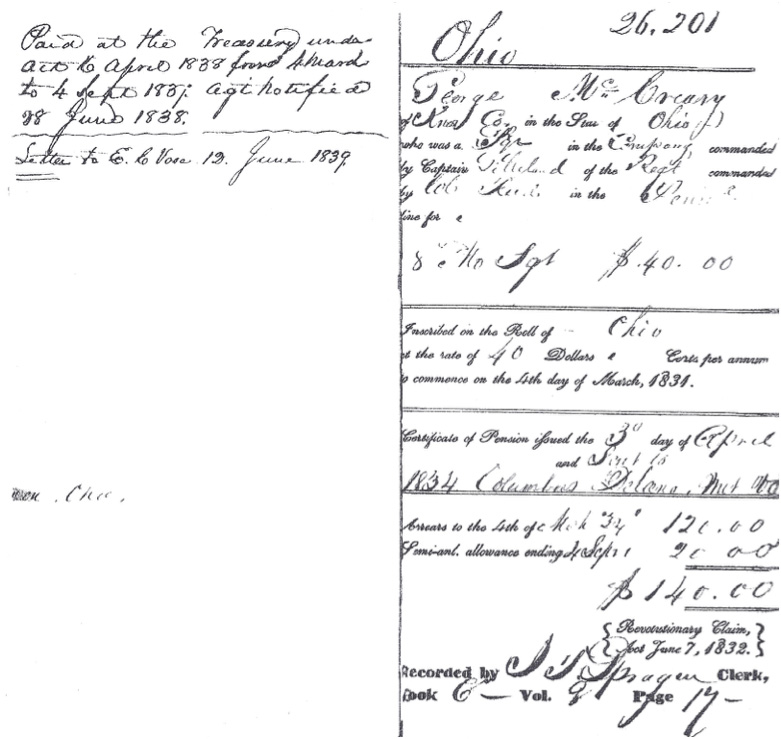 Paid at the Treasury under
act 6 April 1838 from 4 March
to 4 Sept 183; Agt notified
28 June 1838.
Letter to E. C Vose 12. June 1839
Ohio.
26,201
Ohio
George McCreary
of Knox Co. in the State of Ohio
who was a in the Company commanded
by Captain of the Regt commanded
by Col in the
line for
8 Mo Sgt $40.00
Inscribed on the Roll of Ohio
at the rate of 40 Dollars Cents per annum
to commence on the 4th day of March, 1831.
Certificate of Pension issued the 3d day of April
and Sent to
1834 Columbus Delano, Mt
Arrears to the 4th of Mch 34 120.00
Semi-anl. allowance ending 4 Sept 20 00
$140.00
Revolutionary Claim,
Act June 7, 1832.
Recorded by Sprague Clerk,
Book E Vol. 9 Page 17